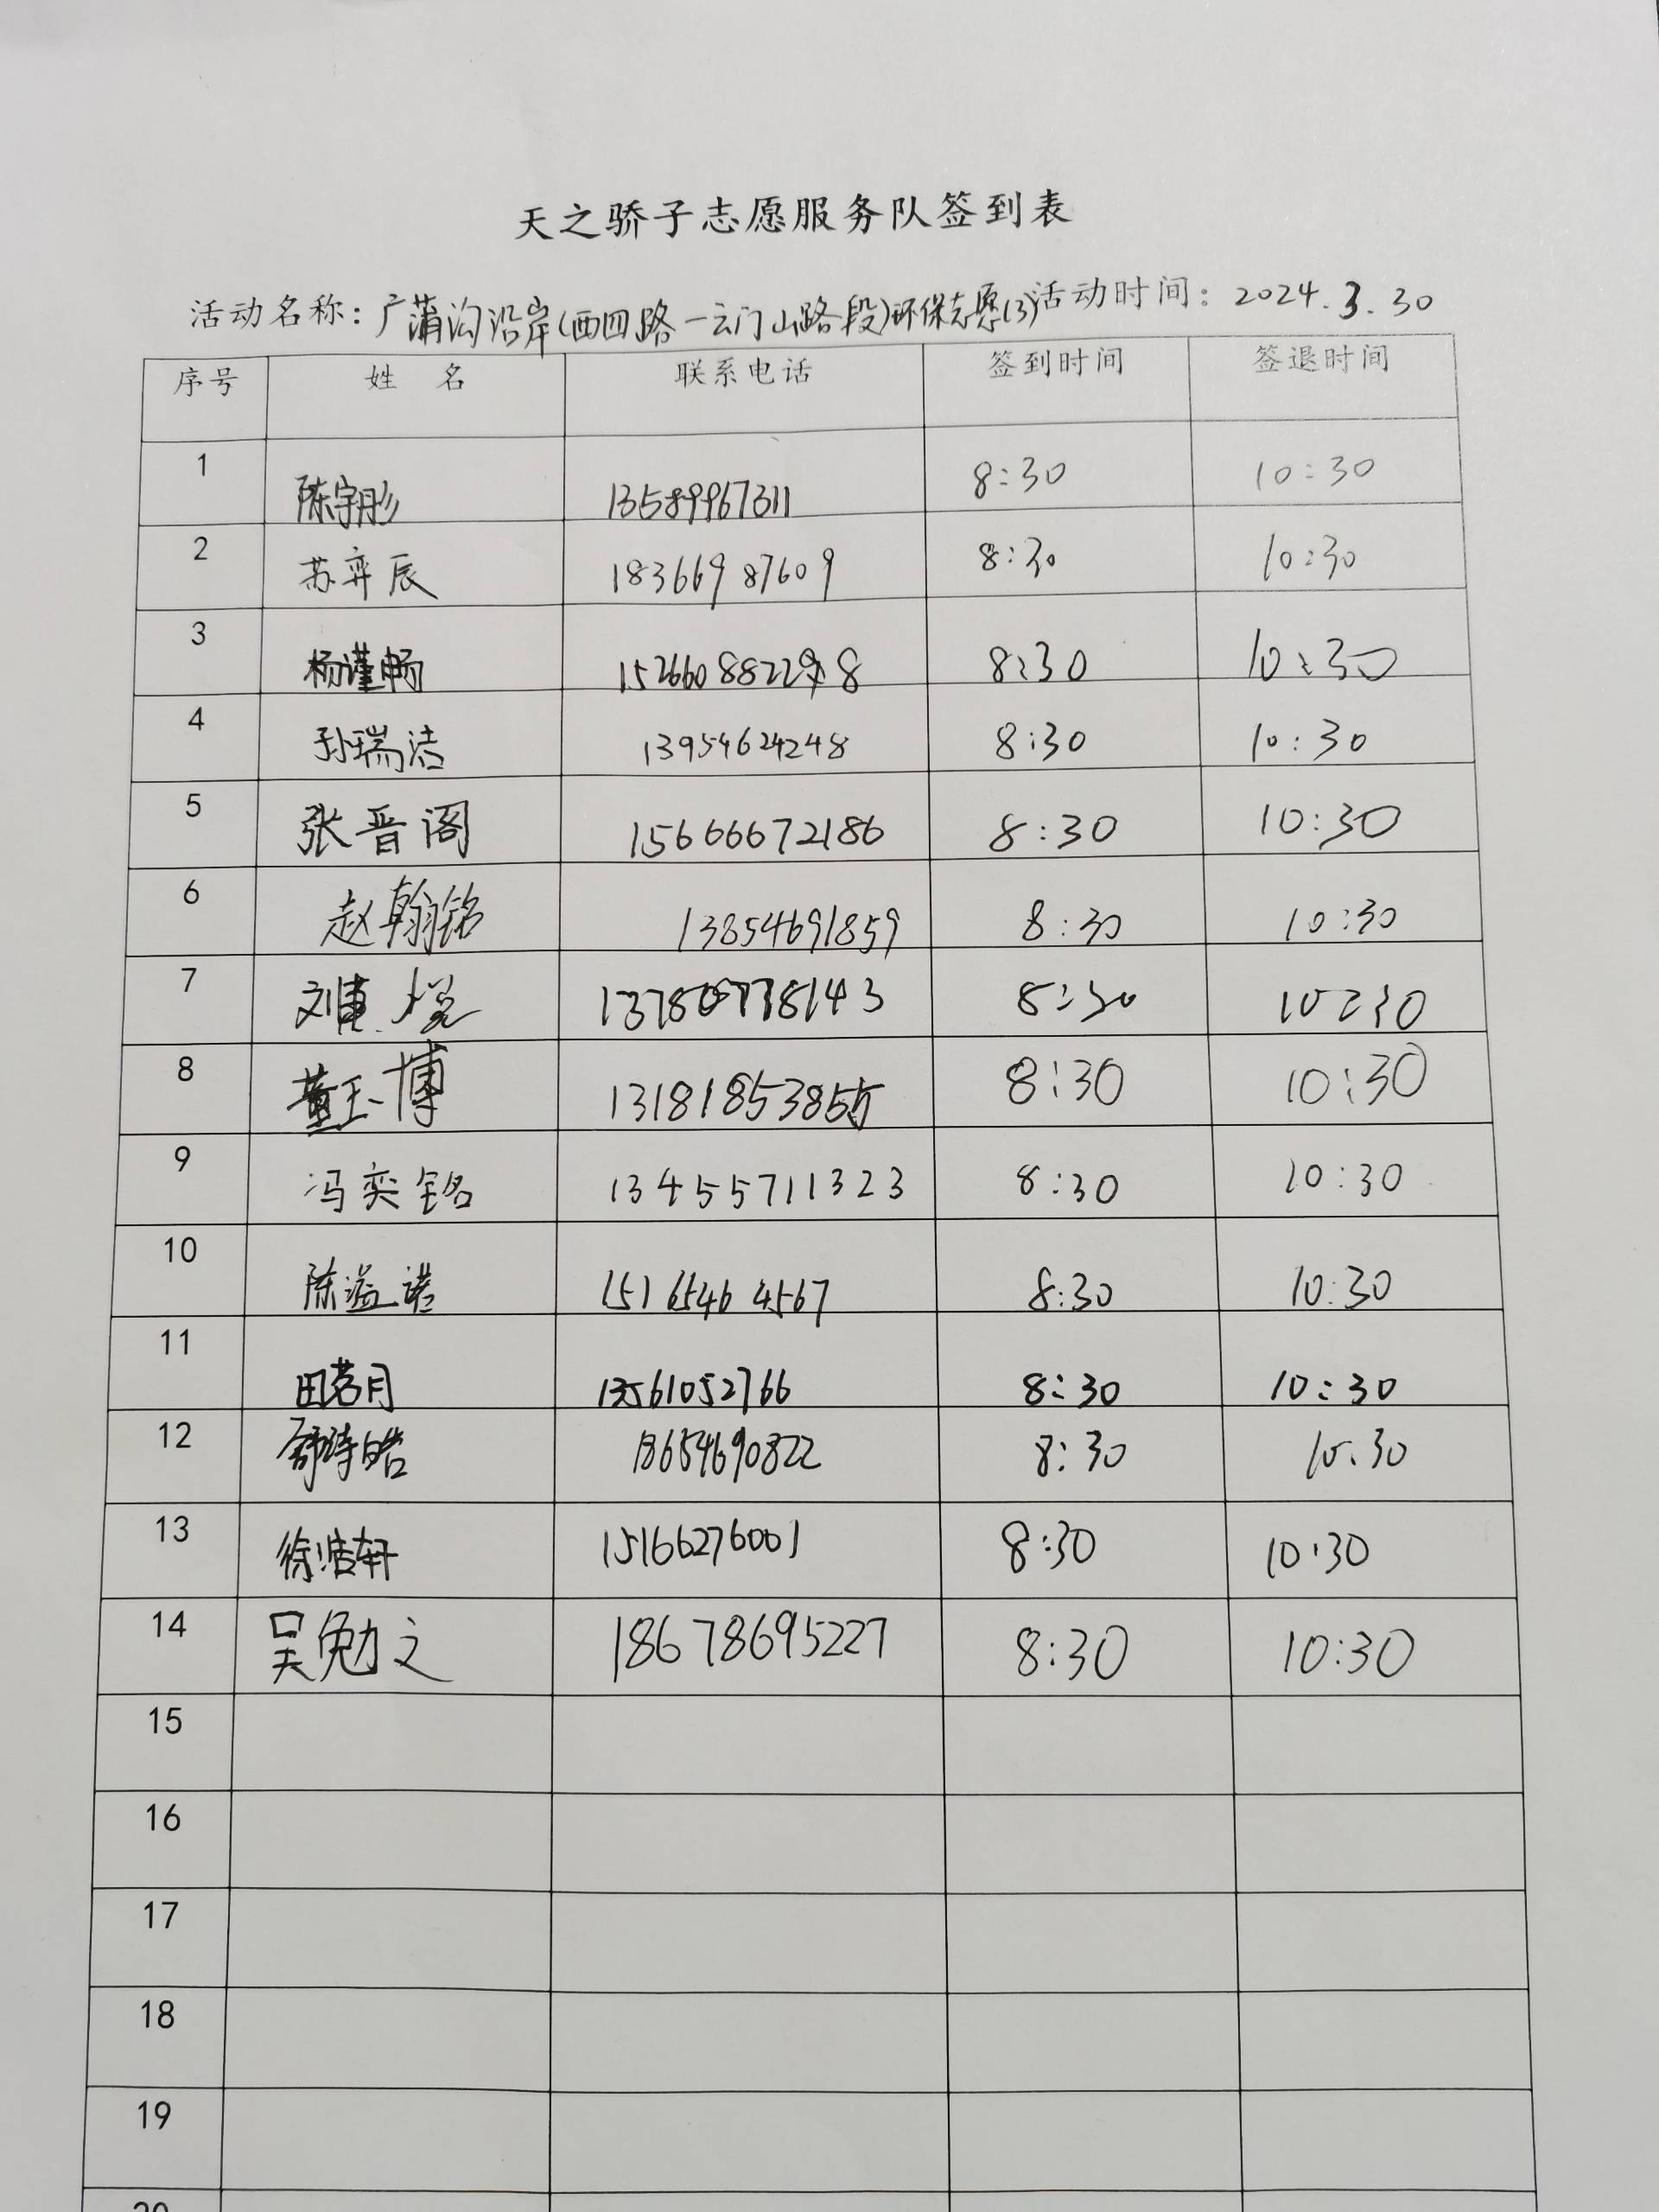 天之骄子志愿服务队签到表
活动名称：广蒲沟沿岸(西四路一云门山路段)环保志愿(3) 活动时间：2024.3.30
序号 姓 名 联系电话 签到时间 签退时间
1 陈宇彤 13589967311 8:30 10:30
2 苏弈辰 18366987609 8:30 10:30
3 杨谨畅 8:30 10:30
4 孙瑞洁 13954624248 8:30 10:30
5 张晋阁 15666672186 8:30 10:30
6 赵翰铭 13854691859 8:30 10:30
7 8:30 10:30
8 董玉博 13181853855 8:30 10:30
9 冯奕铭 13455711323 8:30 10:30
10 陈溢诺 15165464567 8:30 10:30
11 田茗月 13561052766 8:30 10:30
12 18654690822 8:30 10:30
13 徐浩轩 15166276001 8:30 10:30
14 吴勉文 18678695227 8:30 10:30
15
16
17
18
19
20